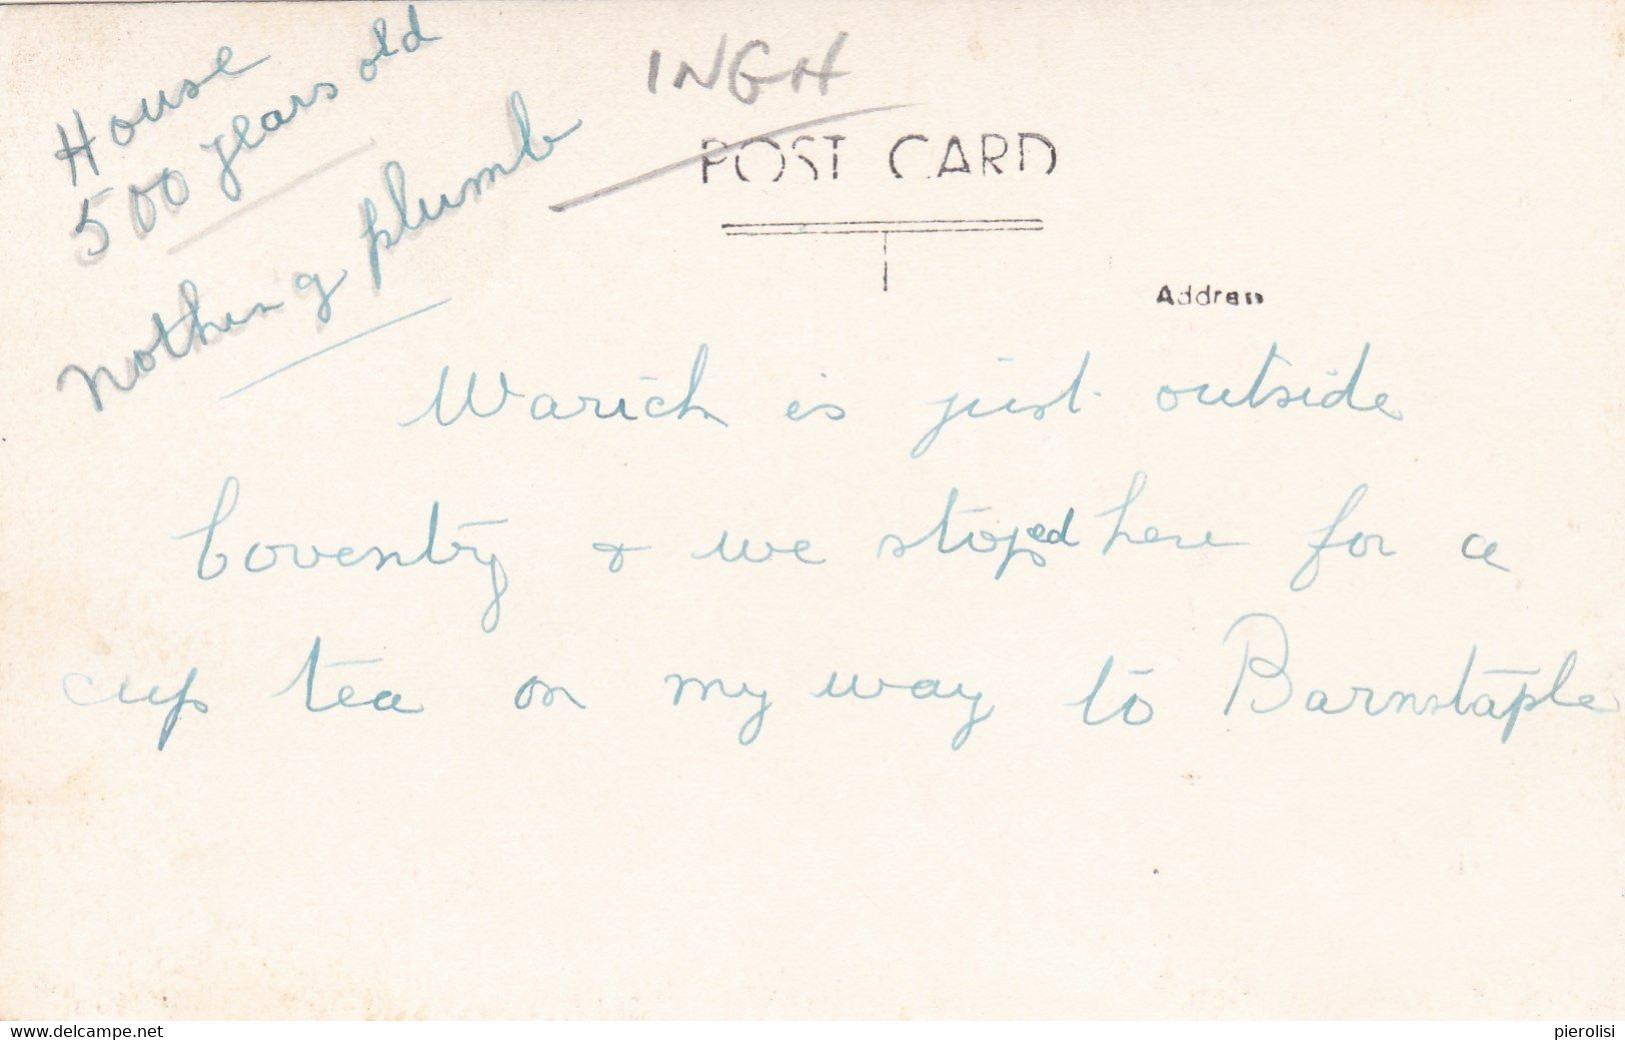 House
500 years old
nothing plumb
INGH
POST CARD
Address
Warick is just outside
Coventry & we stoped here for a
cup tea on my way to Barnstaple
www.delcampe.net
pierolisi